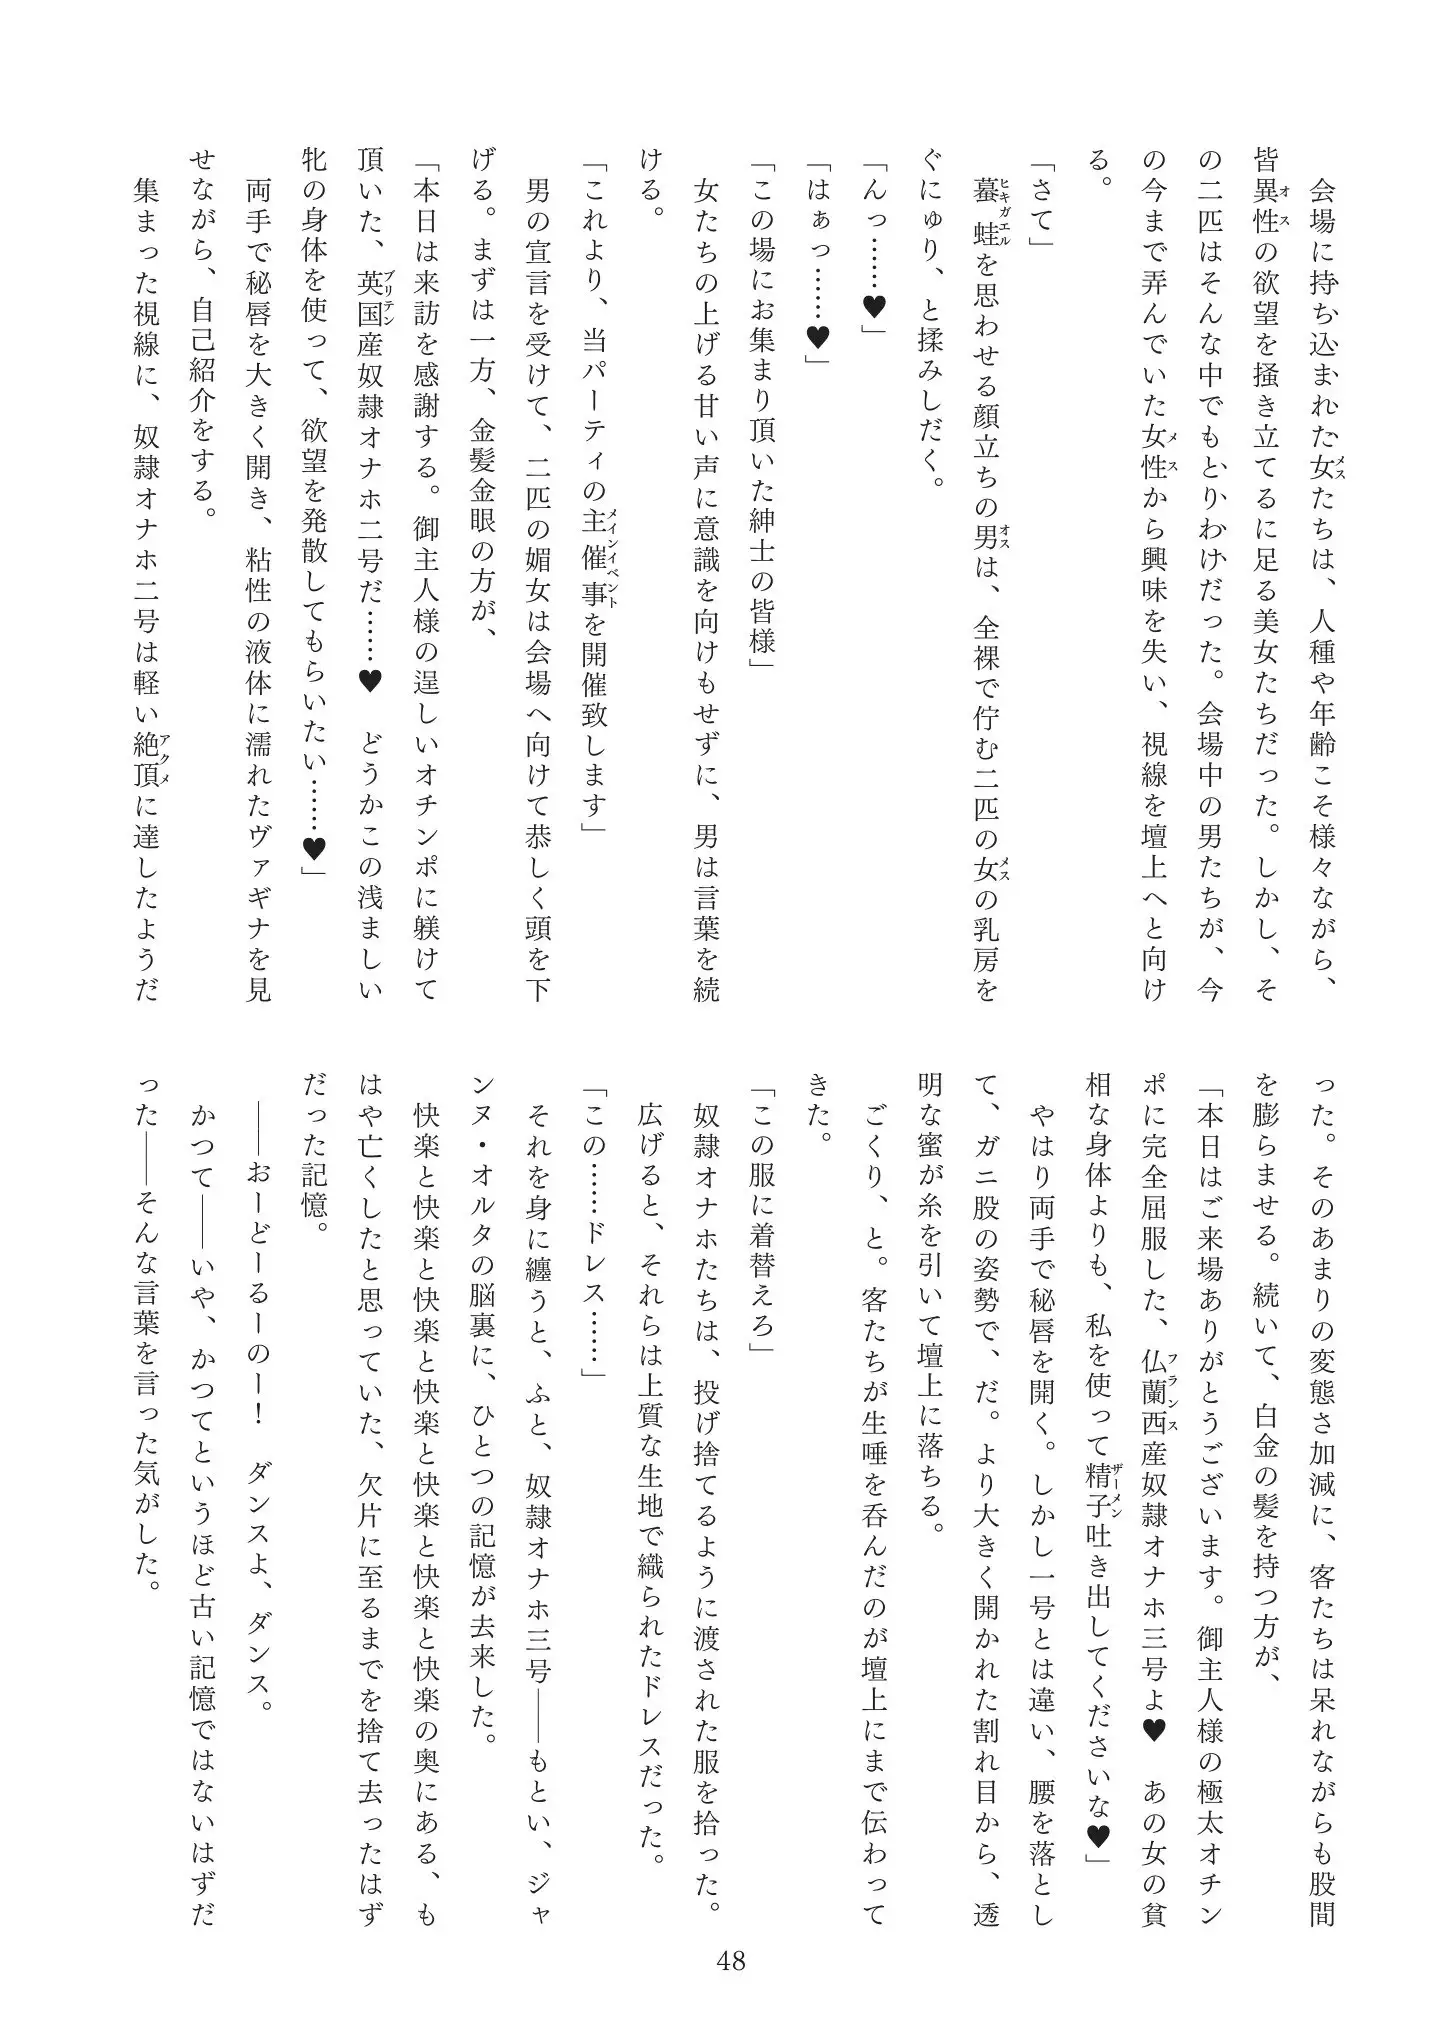 会場に持ち込まれた女たちは、人種や年齢こそ様々ながら、
皆異性の欲望を掻き立てるに足る美女たちだった。しかし、そ
の二匹はそんな中でもとりわけだった。会場中の男たちが、今
の今まで弄んでいた女性から興味を失い、視線を壇上へと向け
る。
「さて」
蟇蛙を思わせる顔立ちの男は、全裸で佇む二匹の女の乳房を
ぐにゅり、と揉みしだく。
「んっ……♥」
「はぁっ……♥」
「この場にお集まり頂いた紳士の皆様」
女たちの上げる甘い声に意識を向けもせずに、男は言葉を続
ける。
「これより、当パーティの主催事を開催致します」
男の宣言を受けて、二匹の媚女は会場へ向けて恭しく頭を下
げる。まずは一方、金髪金眼の方が、
「本日は来訪を感謝する。御主人様の逞しいオチンポに躾けて
頂いた、英国産奴隷オナホ二号だ……♥　どうかこの浅ましい
牝の身体を使って、欲望を発散してもらいたい……♥」
両手で秘唇を大きく開き、粘性の液体に濡れたヴァギナを見
せながら、自己紹介をする。
集まった視線に、奴隷オナホ二号は軽い絶頂に達したようだ
った。そのあまりの変態さ加減に、客たちは呆れながらも股間
を膨らませる。続いて、白金の髪を持つ方が、
「本日はご来場ありがとうございます。御主人様の極太オチン
ポに完全屈服した、仏蘭西産奴隷オナホ三号よ♥　あの女の貧
相な身体よりも、私を使って精子吐き出してくださいな♥」
やはり両手で秘唇を開く。しかし一号とは違い、腰を落とし
て、ガニ股の姿勢で、だ。より大きく開かれた割れ目から、透
明な蜜が糸を引いて壇上に落ちる。
ごくり、と。客たちが生唾を呑んだのが壇上にまで伝わって
きた。
「この服に着替えろ」
奴隷オナホたちは、投げ捨てるように渡された服を拾った。
広げると、それらは上質な生地で織られたドレスだった。
「この……ドレス……」
それを身に纏うと、ふと、奴隷オナホ三号――もとい、ジャ
ンヌ・オルタの脳裏に、ひとつの記憶が去来した。
快楽と快楽と快楽と快楽と快楽と快楽と快楽の奥にある、も
はや亡くしたと思っていた、欠片に至るまでを捨て去ったはず
だった記憶。
――おーどーるーのー！　ダンスよ、ダンス。
かつて――いや、かつてというほど古い記憶ではないはずだ
った――そんな言葉を言った気がした。
48